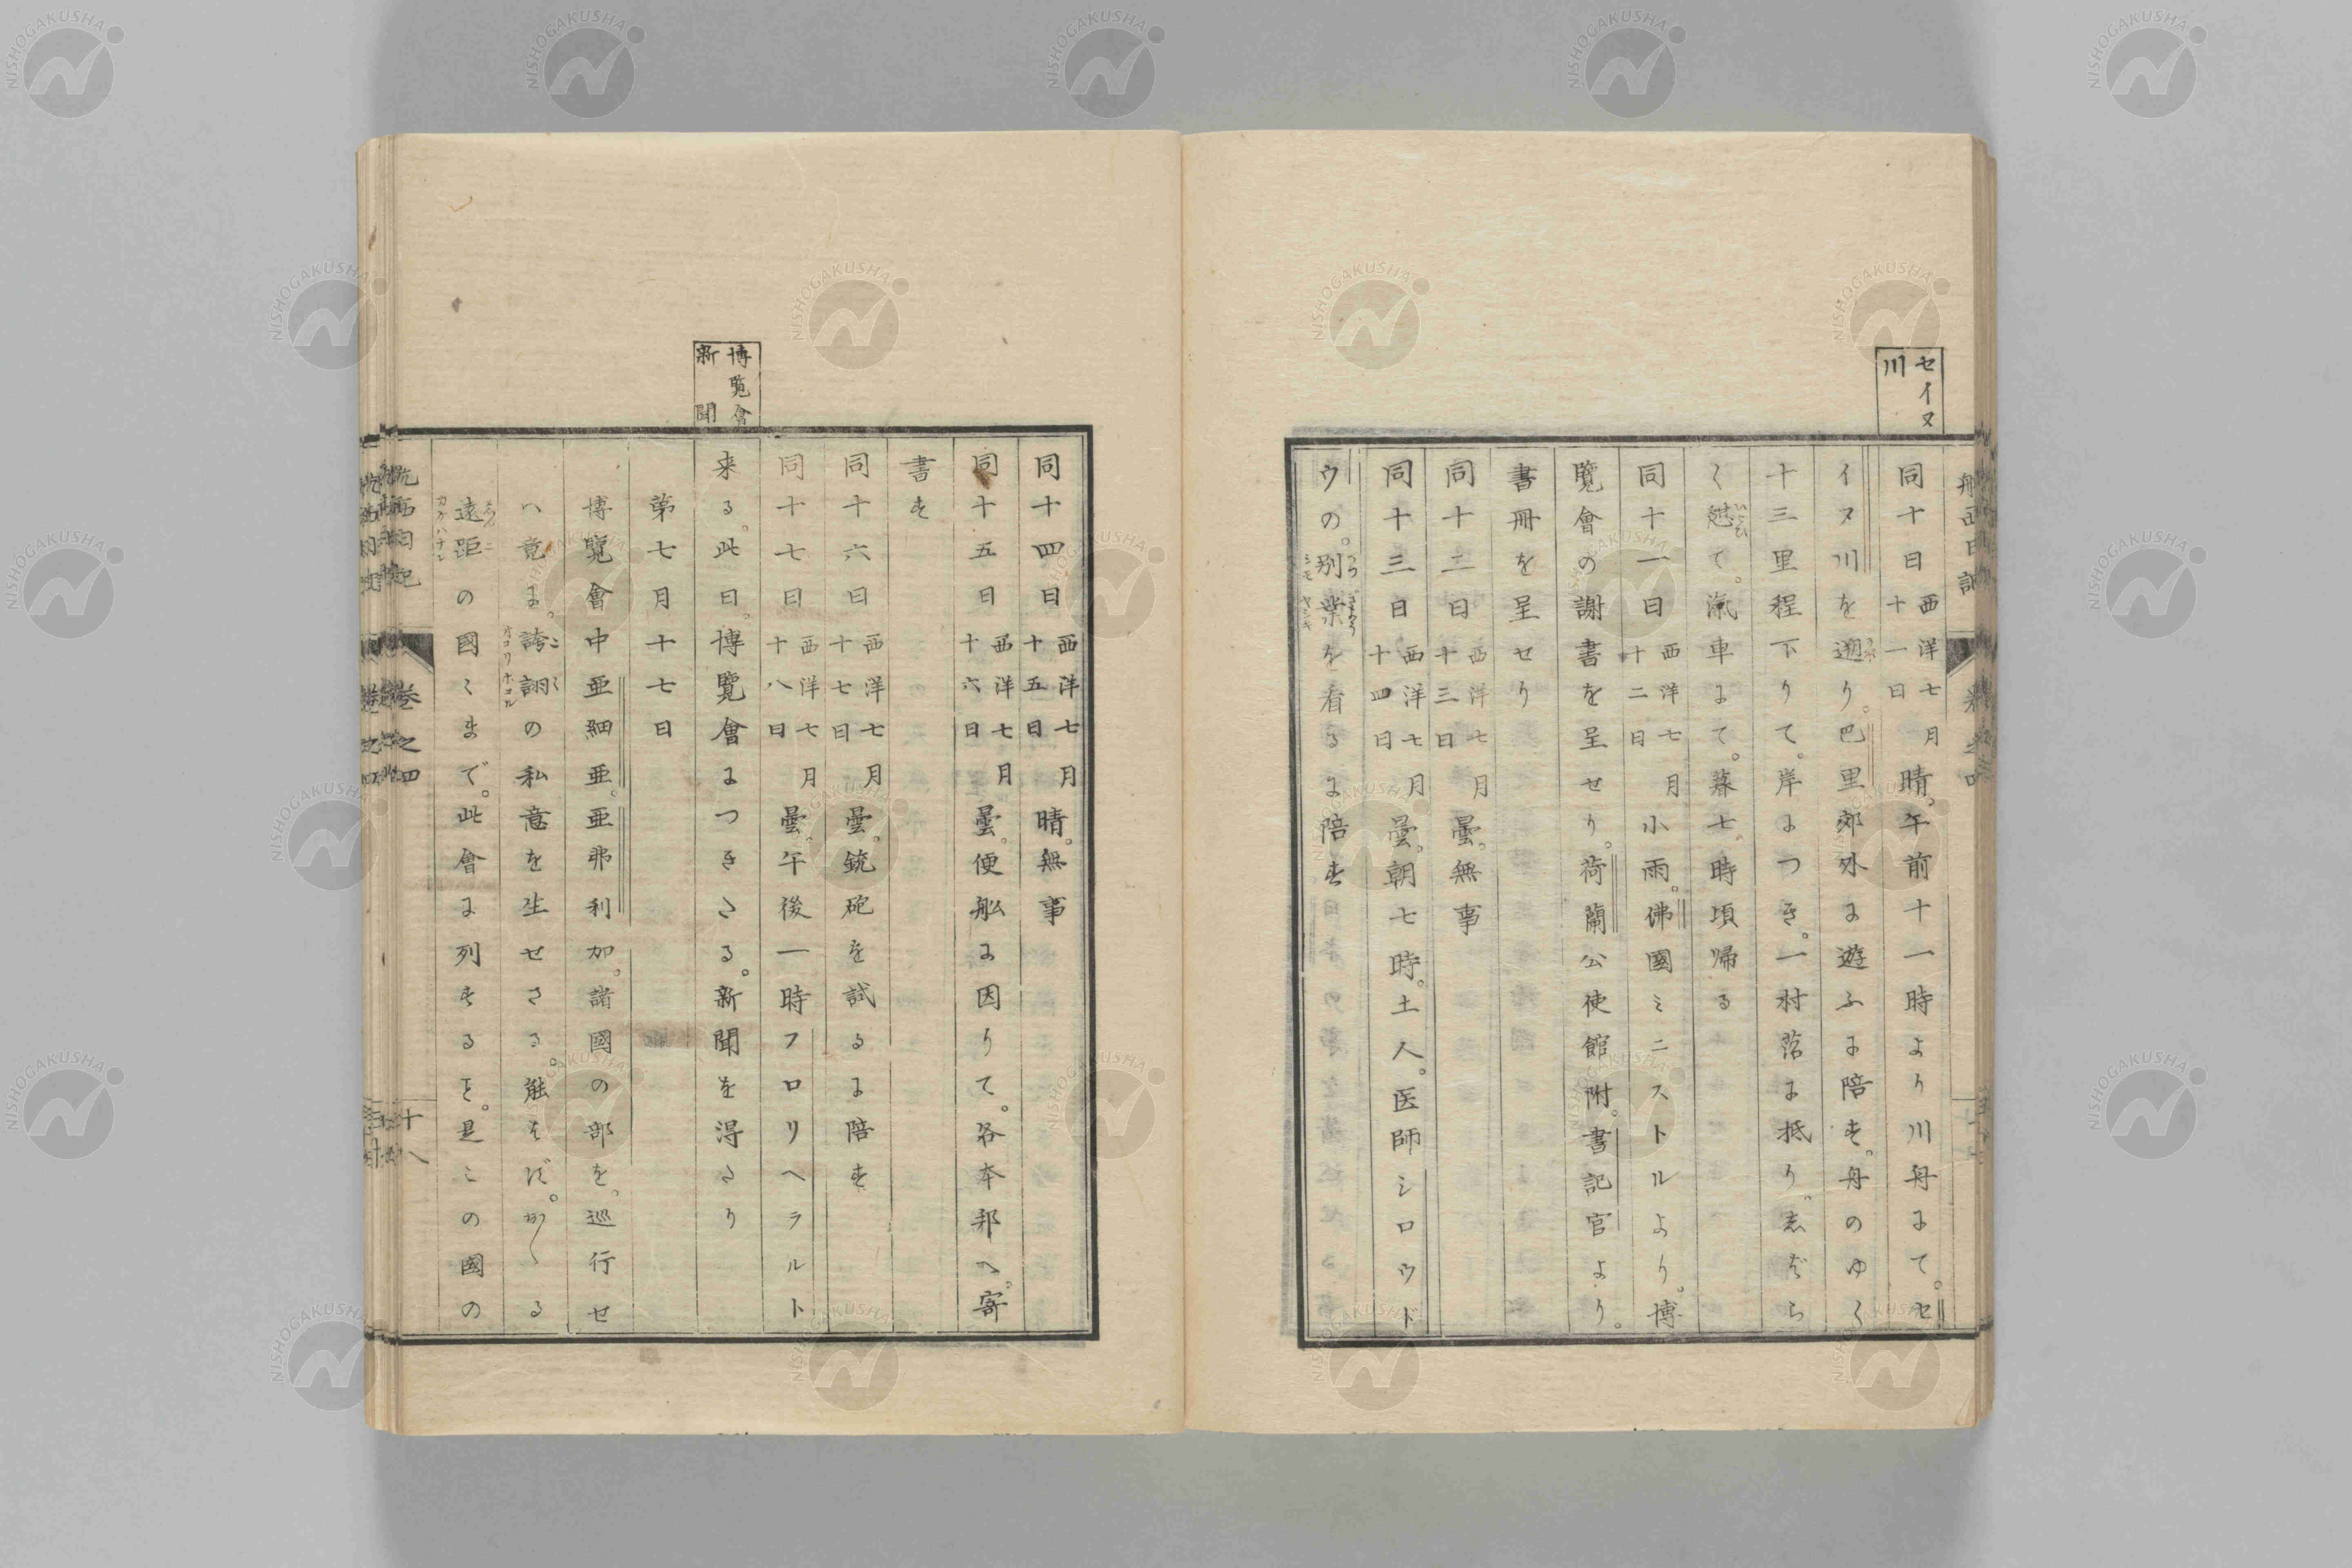 セイヌ
川
同十日西洋七月十一日晴。午前十一時より川舟にて。セ
イヌ川を遡り。巴里郊外に遊ふに陪す。舟のゆく
十三里程下りて。岸につき。一村落に抵り。志ばら
く憩て。滊車にて。暮七時頃帰る
同十一日西洋七月十二日小雨。佛國ミニストルより。博
覧會の謝書を呈せり。荷蘭公使館附。書記官より。
書冊を呈せり
同十二日西洋七月十三日曇。無事
同十三日西洋七月十四日曇。朝七時。土人。医師シロウド
ウの。別業を看るに陪す
同十四日西洋七月十五日晴。無事
同十五日西洋七月十六日曇。便舩に因りて。各本邦へ。寄
書す
同十六日西洋七月十七日曇。銃砲を試るに陪す
同十七日西洋七月十八日曇。午後一時フロリヘラルト
来る。此日。博覧會につきたる。新聞を得たり
博覧會
新聞
第七月十七日
博覧會中亜細亜。亜弗利加。諸國の部を。巡行せ
ハ竟に。誇詡の私意を生せさる。能はず。かゝる
遠距の國くまで。此會に列するを。是この國の
航西日記
巻之四
十八